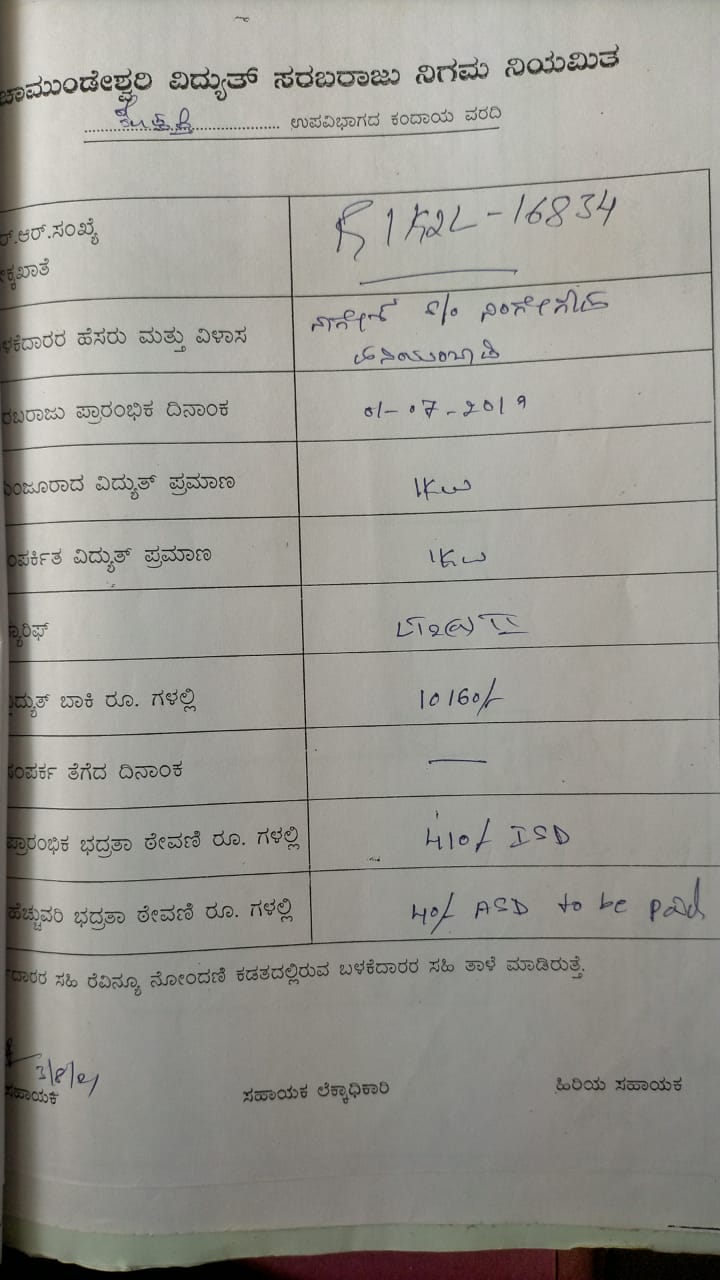 ಚಾಮುಂಡೇಶ್ವರಿ ವಿದ್ಯುತ್ ಸರಬರಾಜು ನಿಗಮ ನಿಯಮಿತ
ಉಪವಿಭಾಗದ ಕಂದಾಯ ವರದಿ
ರ್.ಆರ್.ಸಂಖ್ಯೆ
16834
ಳಕೆದಾರರ ಹೆಸರು ಮತ್ತು ವಿಳಾಸ
S/o
ರಬರಾಜು ಪ್ರಾರಂಭಿಕ ದಿನಾಂಕ 01-07-2019
ಮಂಜೂರಾದ ವಿದ್ಯುತ್ ಪ್ರಮಾಣ 1KW
ಂಪರ್ಕಿತ ವಿದ್ಯುತ್ ಪ್ರಮಾಣ 1KW
್ಯಾರಿಫ್ II
ವಿದ್ಯುತ್ ಬಾಕಿ ರೂ. ಗಳಲ್ಲಿ 10160/-
ಸಂಪರ್ಕ ತೆಗೆದ ದಿನಾಂಕ —
ಪ್ರಾರಂಭಿಕ ಭದ್ರತಾ ಠೇವಣಿ ರೂ. ಗಳಲ್ಲಿ 410/- ISD
ಹೆಚ್ಚುವರಿ ಭದ್ರತಾ ಠೇವಣಿ ರೂ. ಗಳಲ್ಲಿ 40/- ASD to be paid
ದಾರರ ಸಹಿ ರೆವಿನ್ಯೂ ನೋಂದಣಿ ಕಡತದಲ್ಲಿರುವ ಬಳಕೆದಾರರ ಸಹಿ ತಾಳೆ ಮಾಡಿರುತ್ತೆ.
3/8/21
ಸಹಾಯಕ ಸಹಾಯಕ ಲೆಕ್ಕಾಧಿಕಾರಿ ಹಿರಿಯ ಸಹಾಯಕ